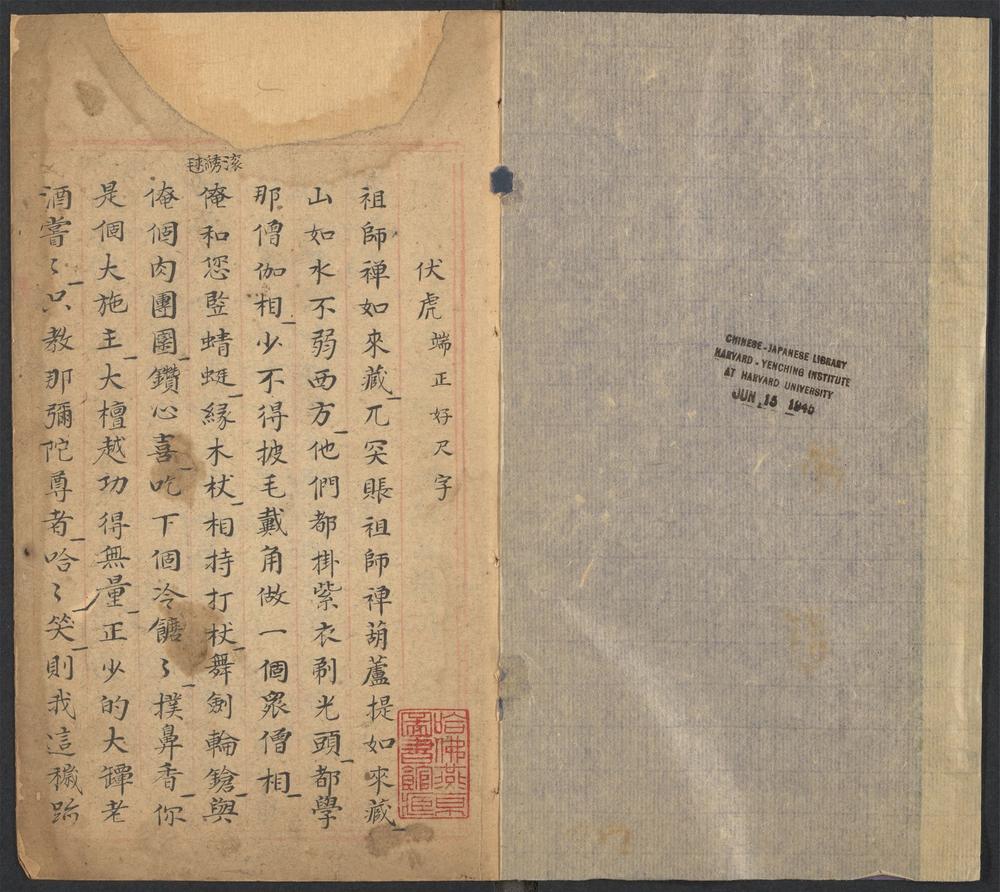 CHINESE-JAPANESE LIBRARY
HARVARD-YENCHING INSTITUTE
AT HARVARD UNIVERSITY
JUN 15 1945
伏虎端正好尺字
祖師禅如來藏兀突賬祖師禅葫蘆提如來藏
山如水不弱西方他們都掛紫衣剃光頭都學
那僧伽相少不得披毛戴角做一個眾僧相
滚綉毬
俺和您監蜻蜓緣木杖相持打杖舞劍輪鎗與
俺個肉團團鑽心喜吃下個冷饝〻撲鼻香你
是個大施主大檀越功得無量正少的大罈老
酒嘗〻只教那彌陀尊者哈〻笑則我這穢跡
哈佛燕京
圖書館